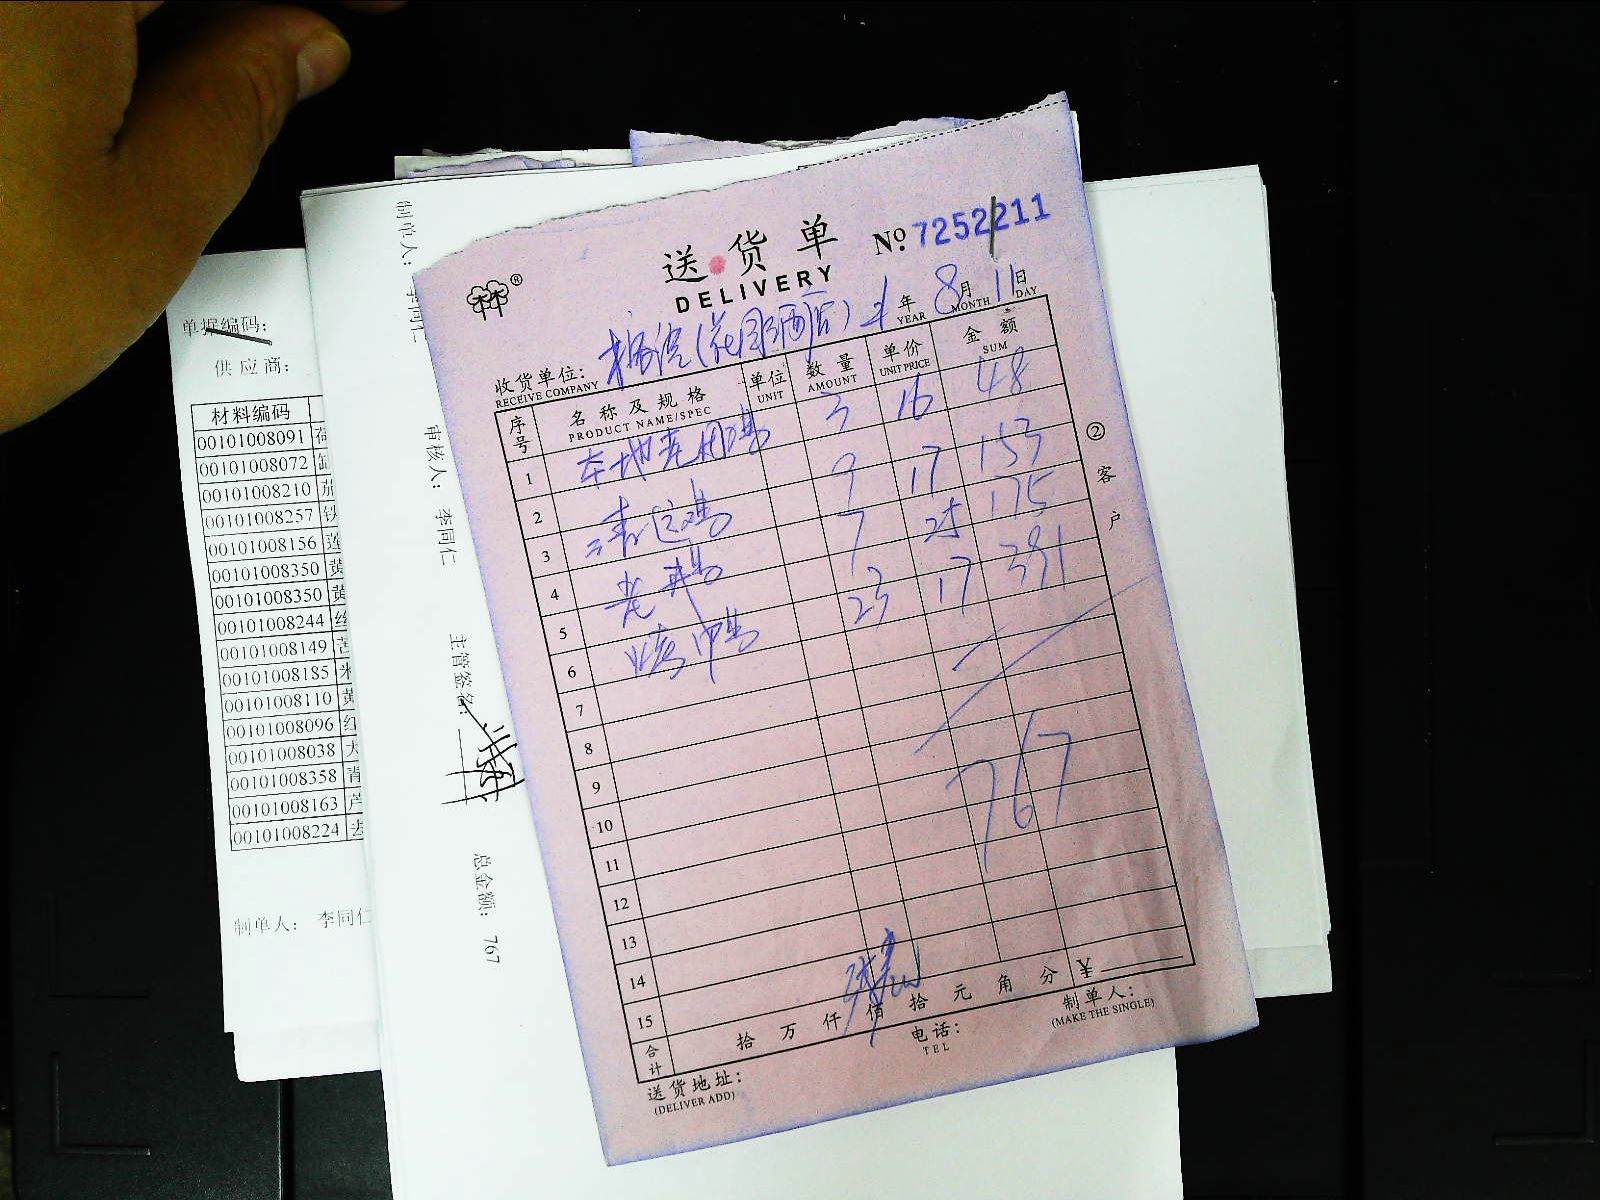 送货单
DELIVERY
№ 7252211
年 8月 11日
YEAR MONTH DAY
收货单位:
RECEIVE COMPANY
序号 名称及规格 单位 数量 单价 金额
PRODUCT NAME/SPEC UNIT AMOUNT UNIT PRICE SUM
1 3 16 48
2 9 17 153
3 7 25 175
4 23 17 391
5
6
7
8
9
767
10
11
12
13
14
15
合计 拾 万 仟 佰 拾 元 角 分 ¥
送货地址:
(DELIVER ADD)
电话:
TEL
制单人:
(MAKE THE SINGLE)
②客户
制单人:
审核人: 李同仁
主管签名:
总金额: 767
单据编码:
供应商:
材料编码
00101008091
00101008072
00101008210 茄
00101008257 铁
00101008156 莲
00101008350 黄
00101008350 黄
00101008244 丝
00101008149
00101008185 米
00101008110 黄
00101008096 红
00101008038 大
00101008358 青
00101008163 芦
00101008224 去
制单人: 李同仁